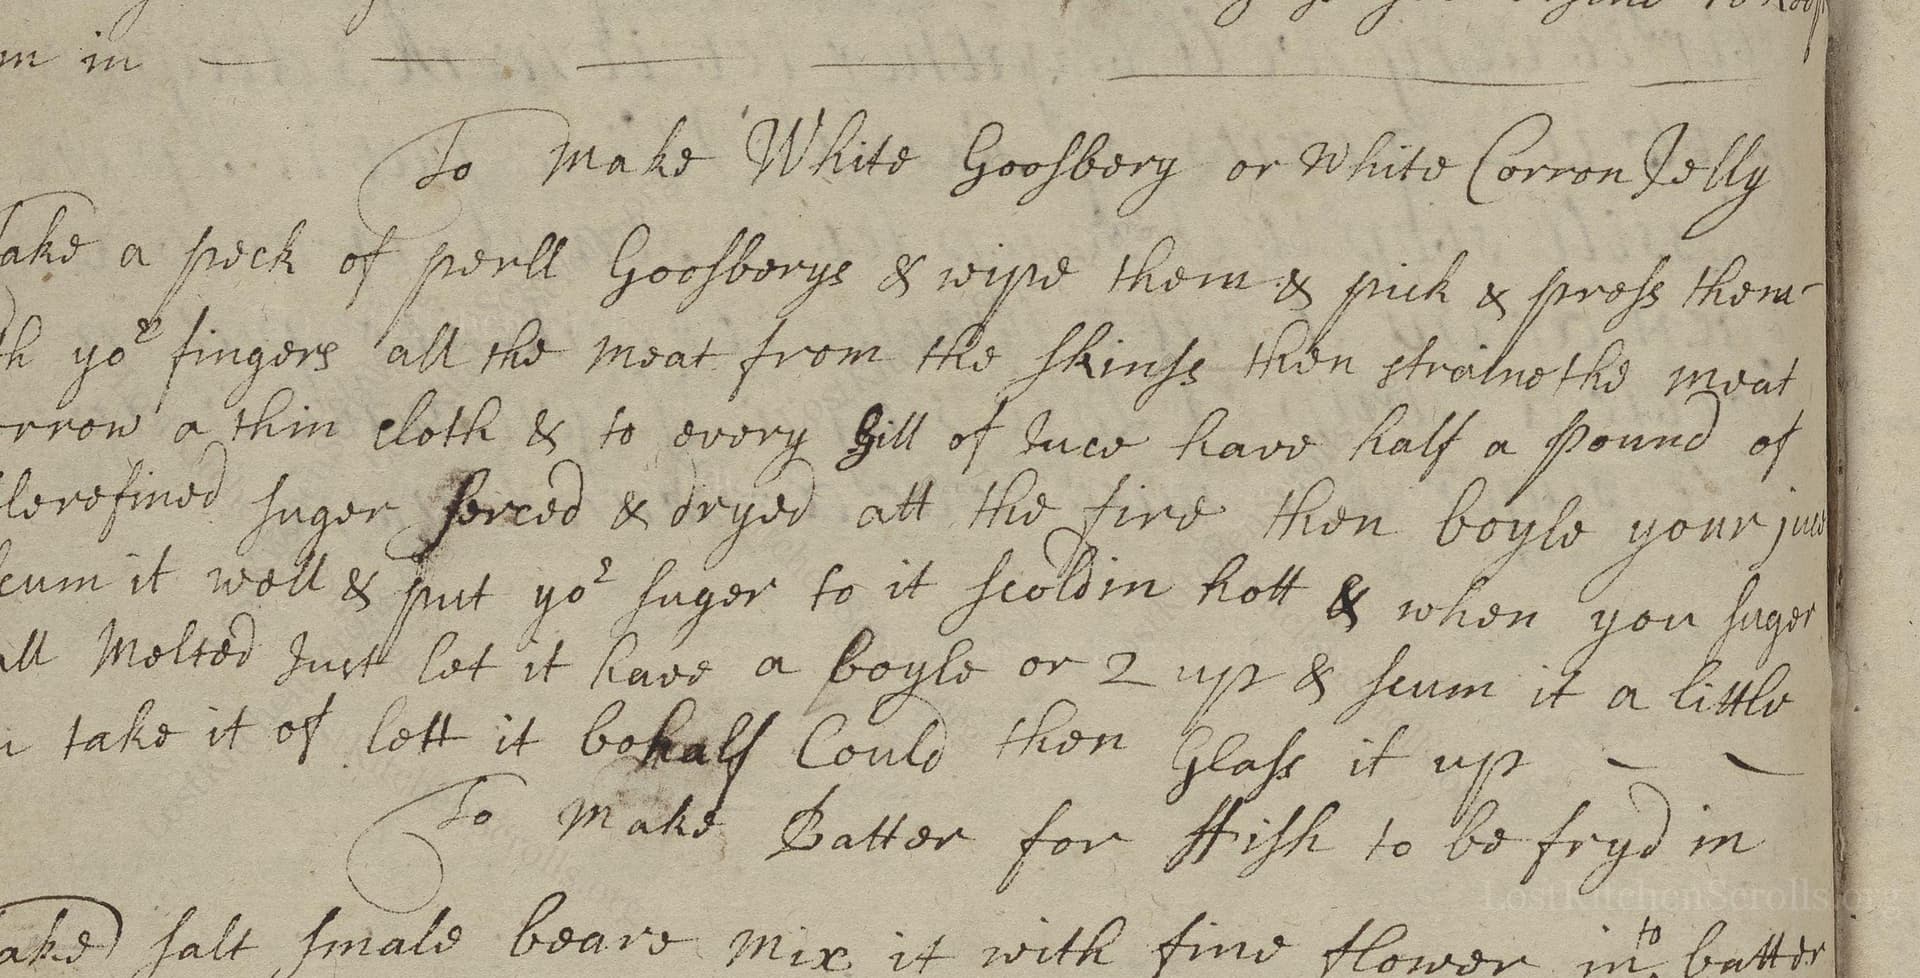 m in
To Make White Goosbery or White Corron Jelly
Take a peck of perll Goosberys & wipe them & pick & press them
th yor fingers all the meat from the skinss then straine the meat
orrow a thin cloth & to every Gill of Juce have half a pound of
blerefined suger serced & dryed att the fire then boyle your juce
scum it well & put yor suger to it scoldin hott & when you suger
all Melted Just let it have a boyle or 2 up & scum it a little
n take it of lett it be half Could then Glass it up
To Make Batter for ffish to be fryd in
ake salt smale beare mix it with fine flower into batter
LostKitchenScrolls.org